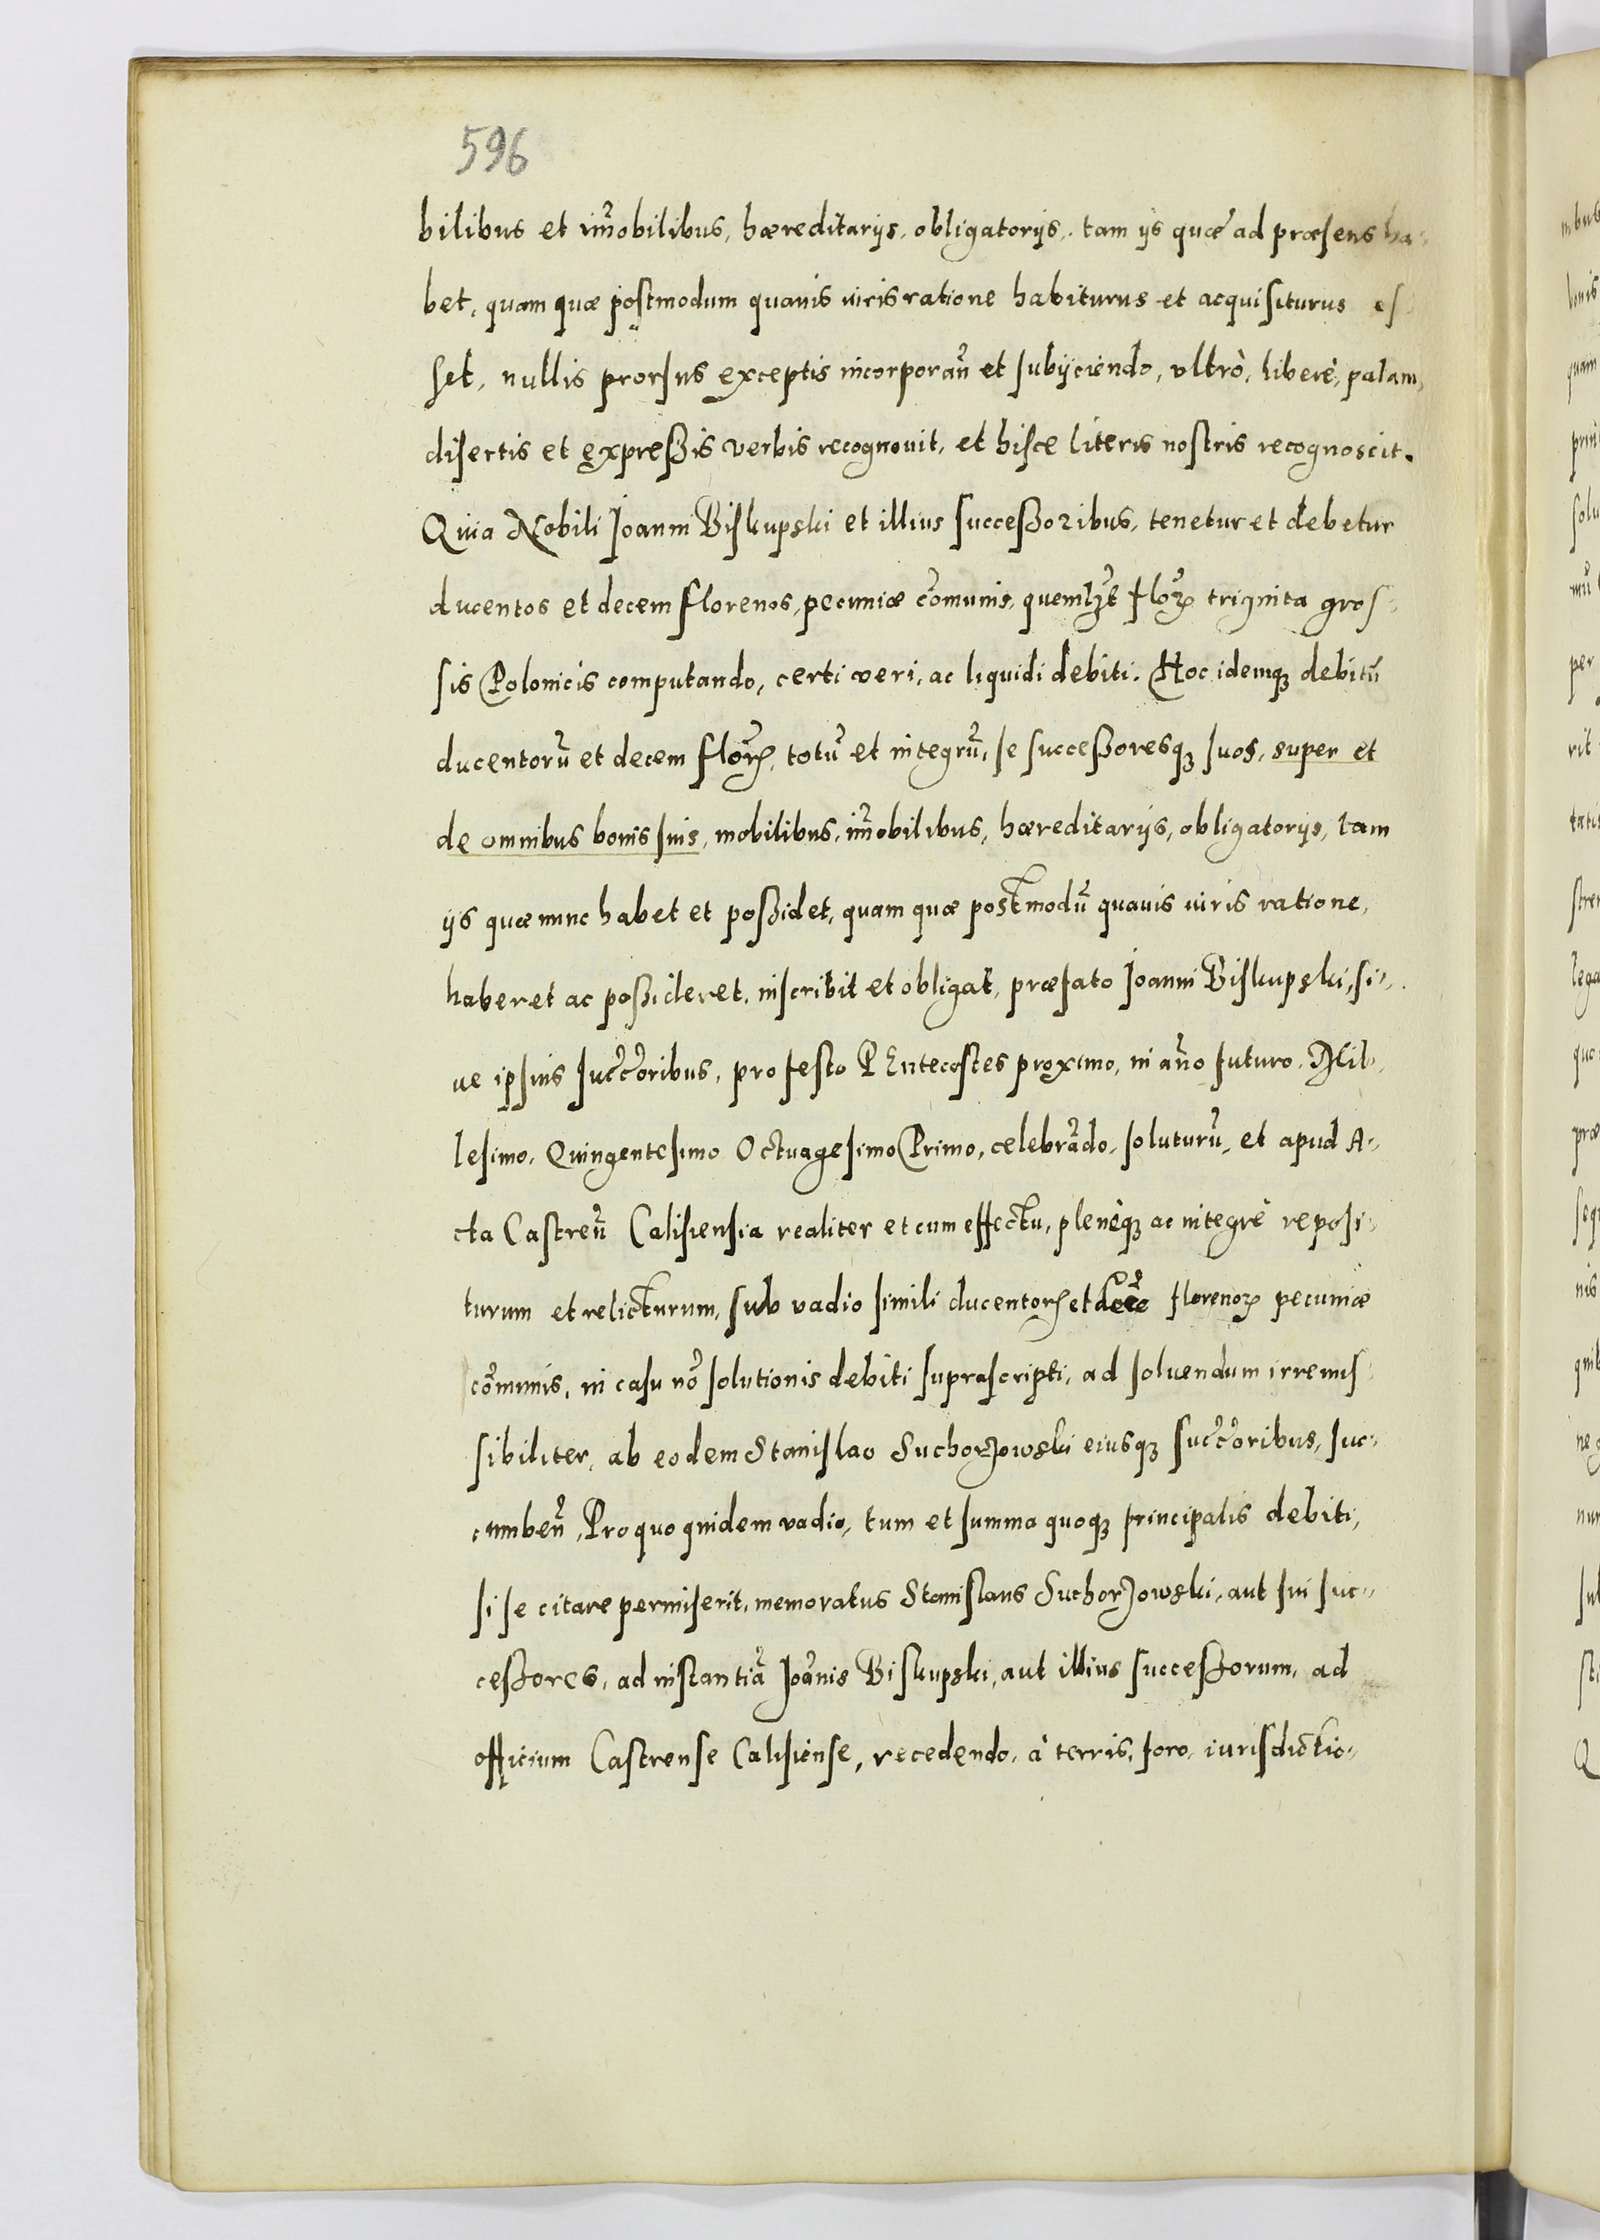 596
bilibus et im̃obilibus, hæreditarijs, obligatorijs, tam ijs quæ ad præsens ha-
bet, quam quæ postmodum quauis iuris ratione habiturus et acquisiturus es-
set, nullis prorsus exceptis incorporañ et subijciendo, vltrò, liberè, palam,
disertis et expreßis verbis recognouit, et hisce literis nostris recognoscit.
Quia Nobili Joanni Biskupski et illius succeßoribus, tenetur et debetur
ducentos et decem florenos, pecuniæ cõmunis, quemlꝫt floꝝ triginta gros-
sis Polonicis computando, certi veri, ac liquidi debiti. Hoc idemqꝫ debitũ
ducentorũ et decem floꝝ, totũ et integrũ, se succeßoresqꝫ suos, super et
de omnibus bonis suis, mobilibus, im̃obilibus, hæreditarijs, obligatorijs, tam
ijs quæ nunc habet et poßidet, quam quæ postmodũ quauis iuris ratione,
haberet ac poßideret, inscribit et obligat, præfato Joanni Biskupski, si-
ue ipsius succ̃oribus, pro festo PEntecostes proximo, in año futuro. Mil-
lesimo, Quingentesimo Octuagesimo Primo, celebrãdo, soluturũ, et apud A-
cta Castreñ Calisiensia realiter et cum effectu, plenèqꝫ ac integrè reposi-
turum et relicturum, sub vadio simili ducentoꝝ et decẽ florenoꝝ pecuniæ
cõmunis, in casu nõ solutionis debiti suprascripti, ad soluendum irremis-
sibiliter, ab eodem Stanislao Suchorzowski eiusqꝫ succ̃oribus, suc-
cumbeñ, Pro quo quidem vadio, tum et summa quoqꝫ principalis debiti,
si se citare permiserit, memoratus Stanislaus Suchorzowski, aut sui suc-
ceßores, ad instantiã Joãnis Biskupski, aut illius succeßorum, ad
officium Castrense Calisiense, recedendo, à terris, foro, iurisdictio-